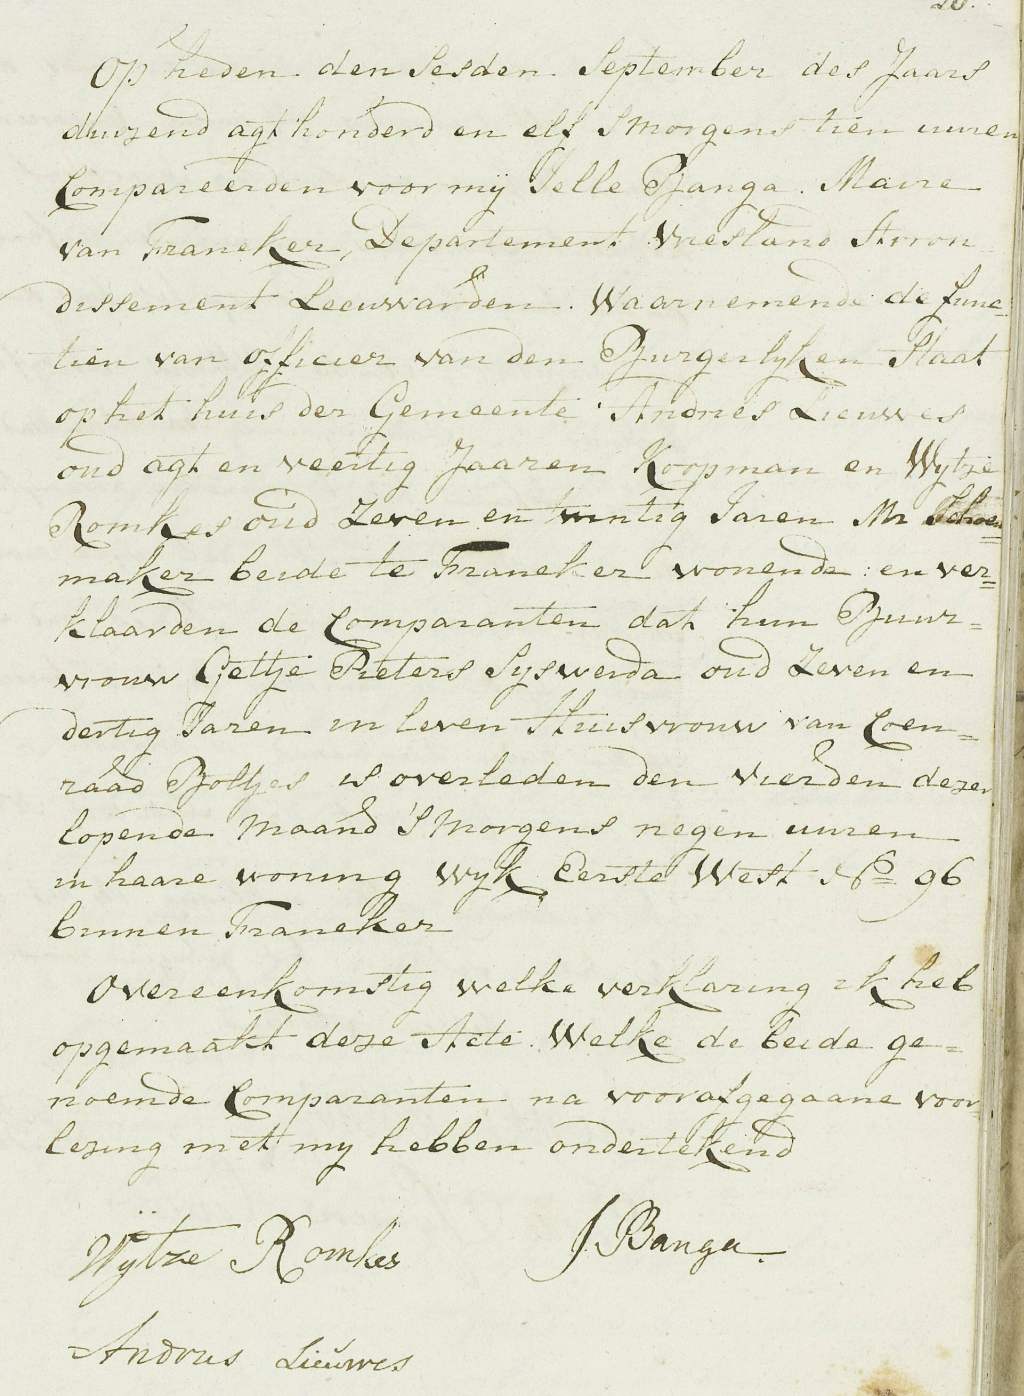 Op heden den Sesden September des Jaars
duizend agt honderd en elf Smorgens tien uuren
Compareerden voor mij Jelle Banga. Maire
van Franeker, Departement Vriesland Arron
dissement Leeuwarden. Waarnemende de func=
tien van officier van den Burgerlyken Staat
op het huis der Gemeente Andries Lieuwes
oud agt en veertig Jaaren Koopman en Wytze
Romkes oud Zeven en twintig Jaren Mr Schoen=
maker beide te Franeker wonende: en ver=
klaarden de Comparanten dat hun Buur=
vrouw Geltje Pieters Syswerda oud Zeven en
dertig Jaren in leven Huisvrouw van Coen=
raad Boltjes is overleden den vierden dezer
lopende Maand 'S Morgens negen uuren
in haare woning Wyk Eerste West No= 96
binnen Franeker
Overeenkomstig welke verklaring ik heb
opgemaakt deze Acte. Welke de beide ge=
noemde Comparanten na voorafgegaane voor=
lezing met my hebben ondertekend
Wÿtze Romkes J. Banga.
Andries Lieuwes